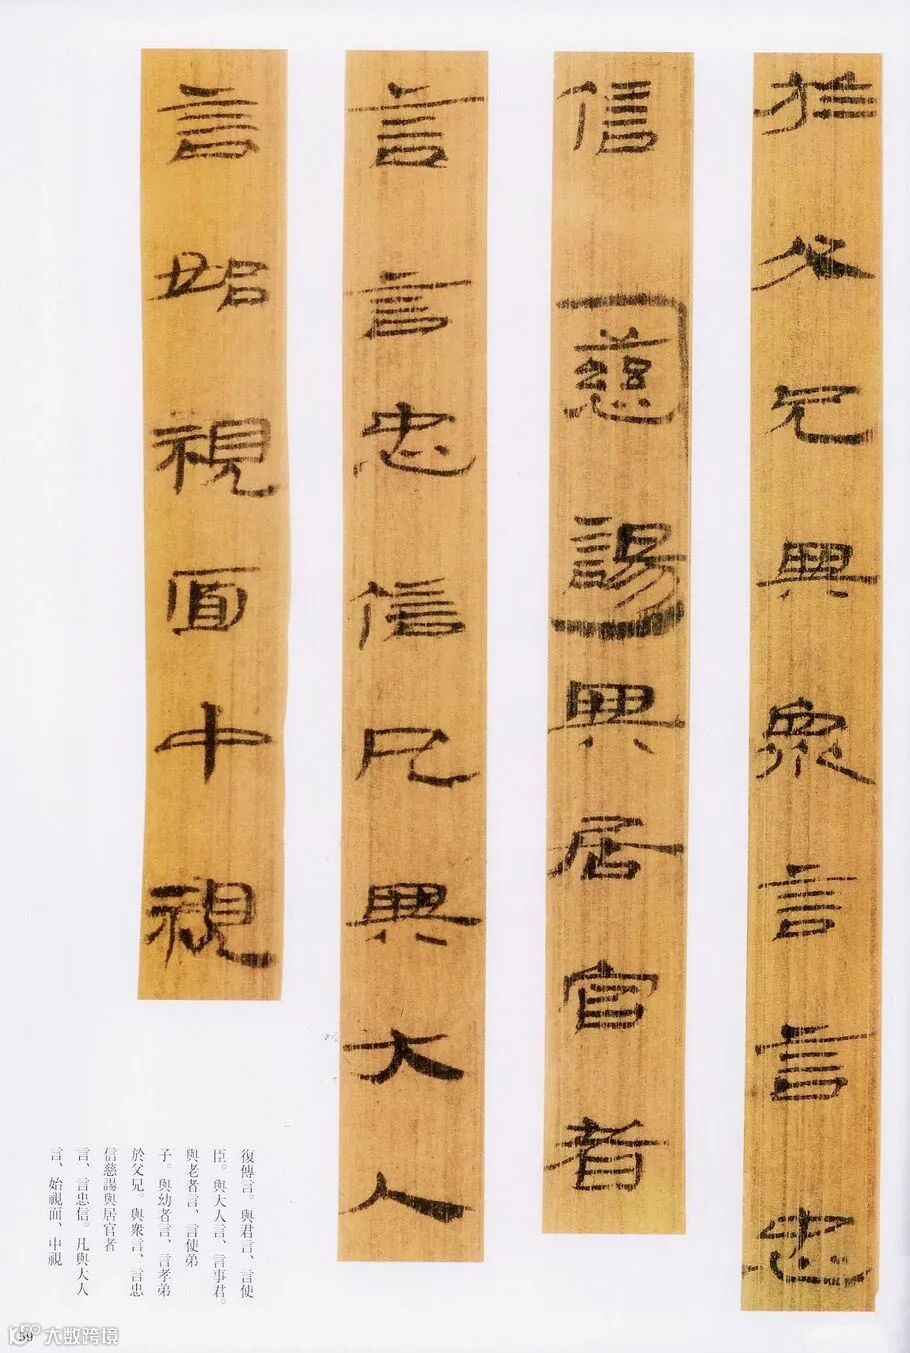 於父兄與衆言言忠
信慈諹與居官者
言言忠信凡與大人
言始視面中視
復傳言。與君言、言使
臣。與大人言、言事君。
與老者言、言使弟
子。與幼者言、言孝弟
於父兄。與衆言、言忠
信慈諹與居官者
言、言忠信。凡與大人
言、始視面、中視
59
大数跨境